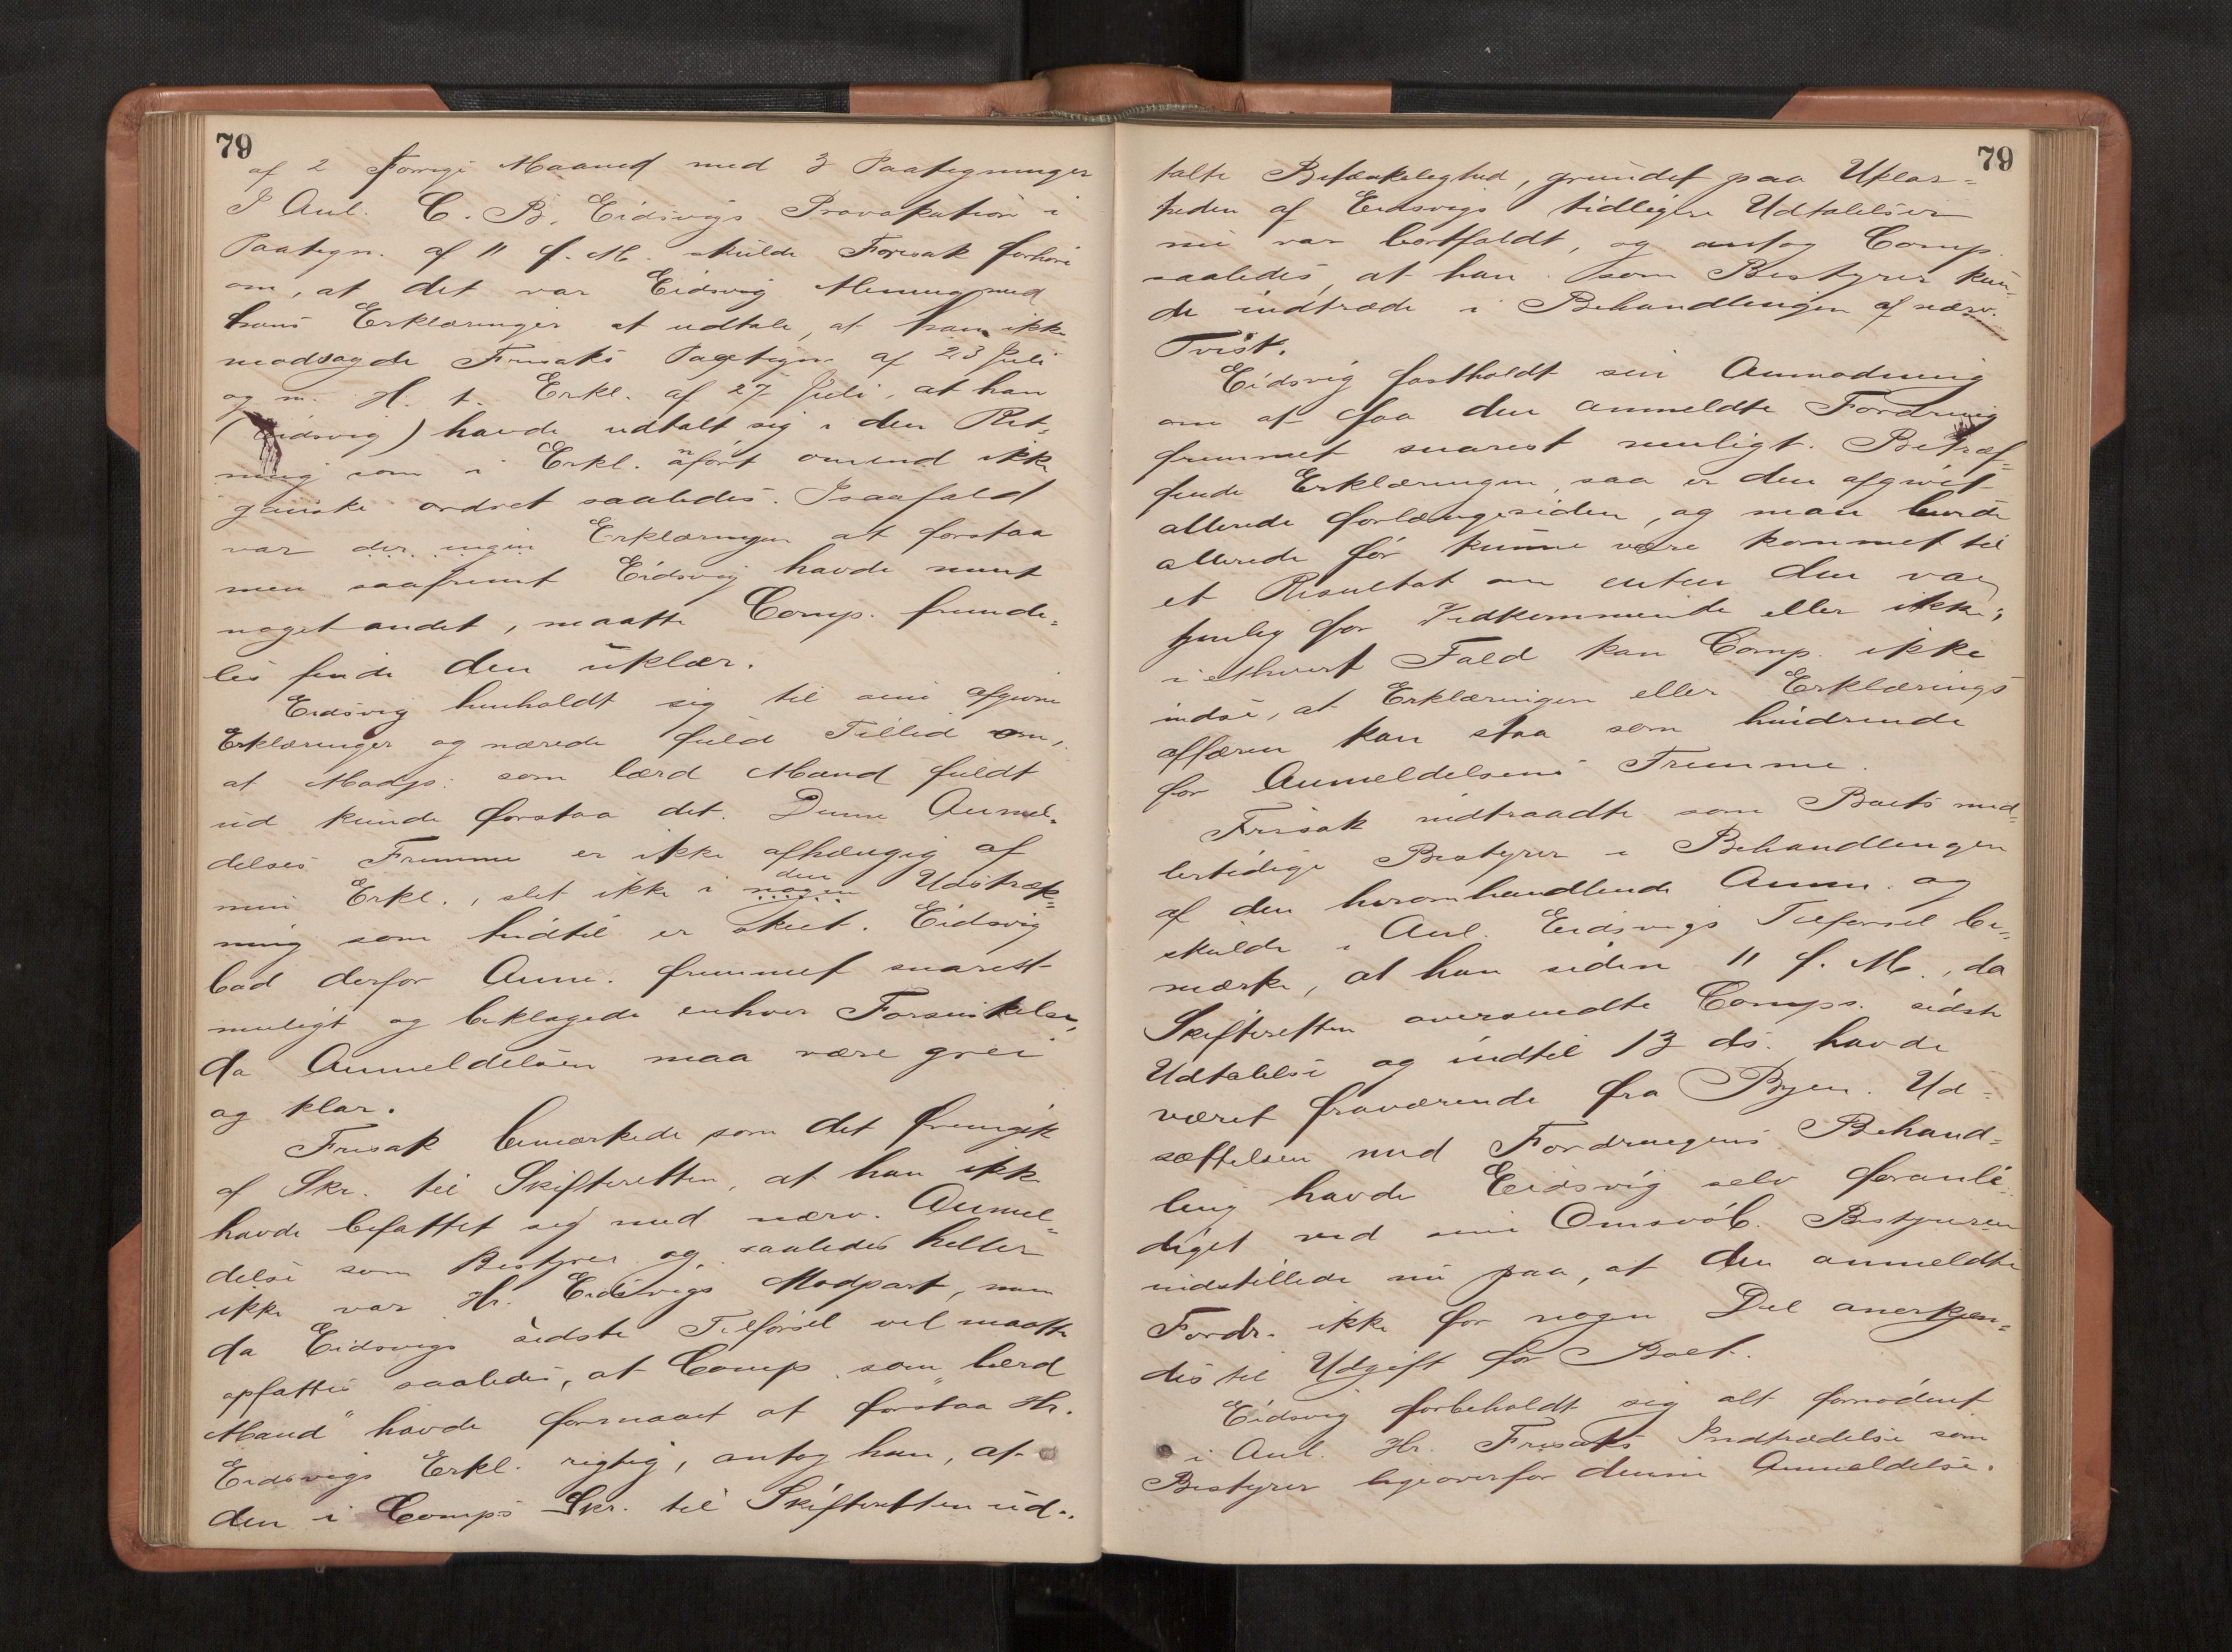 79
af 2 forrige Maaned med 3 Paategninger
I Anl. C. B. Eidsvigs Provokation i
Paategn. af 11 f. M. skulde Frisak forhøre
om, at det var Eidsvig Mening med
hans Erklæringer at udtale, at han ikke
modsagde Frisaks Paategn af 23 Juli
og m. H. t. Erkl. af 27 Juli, at han
(Eidsvig) havde udtalt sig i den Ret-
ning som i Erkl. anført omend ikke
ganske ordret saaledes. Isaafald
var der ingen Erklæringen at forstaa
men saafremt Eidsvig havde ment
noget andet, maatte Comp. fremde-
les finde den uklar.
Eidsvig henholdt sig til sine afgivne
Erklæringer og nærede fuld Tillid om,
at Modp. som lærd Mand fuldt
ud kunde forstaa det. Denne Anmel-
delses Fremme er ikke afhængig af
min Erkl., slet ikke i nogen den Udstræk-
ning som hidtil er skeet. Eidsvig
bad derfor Anm. fremmet snarest
muligt og beklagede enhver Forsinkelse,
da Anmeldelsen maa være grei
og klar.
Frisak bemærkede som det fremgik
af Skr. til Skifteretten, at han ikke
havde befattet sig med nærv. Anmel-
delse som Bestyrer og saaledes heller
ikke var Hr. Eidsvigs Modpart, men
da Eidsvigs sidste Tilførsel vel maatte
opfattes saaledes, at Comp. som "lærd
Mand" havde formaaet at forstaa Hr.
Eidsvigs Erkl. rigtig, antog han, at
den i Comps Skr. til Skifteretten ud-
79
talte Betænkelighed, grundet paa Uklar-
heden af Eidsvigs tidligere Udtalelser
nu var bortfaldt, og antog Comp.
saaledes, at han som Bestyrer kun-
de indtræde i Behandlingen af nærv.
Tvist.
Eidsvig fastholdt sin Anmodning
om at faa den anmeldte Fordring
fremmet snarest muligt. Betræf-
fende Erklæringen, saa er den afgivet
allerede forlængesiden, og man burde
allerede før kunne være kommet til
et Resultat om enten den var
tjenlig for Vedkommende eller ikke;
i ethvert Fald kan Comp. ikke
indse, at Erklæringen eller Erklærings
affæren kan staa som hindrende
for Anmeldelsens Fremme.
Frisak indtraadte som Boets mid-
lertidige Bestyrer i Behandlingen
af den heromhandlende Anm. og
skulde i Anl. Eidsvigs Tilførsel be-
mærke, at han siden 11 f. M., da
Skifteretten oversendte Comps. sidste
Udtalelse og indtil 13 ds. havde
været fraværende fra Byen. Ud-
sættelsen med Fordringens Behand-
ling havde Eidsvig selv foranle-
diget ved sine Omsvøb. Bestyreren
indstillede nu paa, at den anmeldte
Fordr. ikke for nogen Del anerkjen-
des til Udgift for Boet.
Eidsvig forbeholdt sig alt fornødent
i Anl. Hr. Frisaks Indtrædelse som
Bestyrer ligeoverfor denne Anmeldelse.